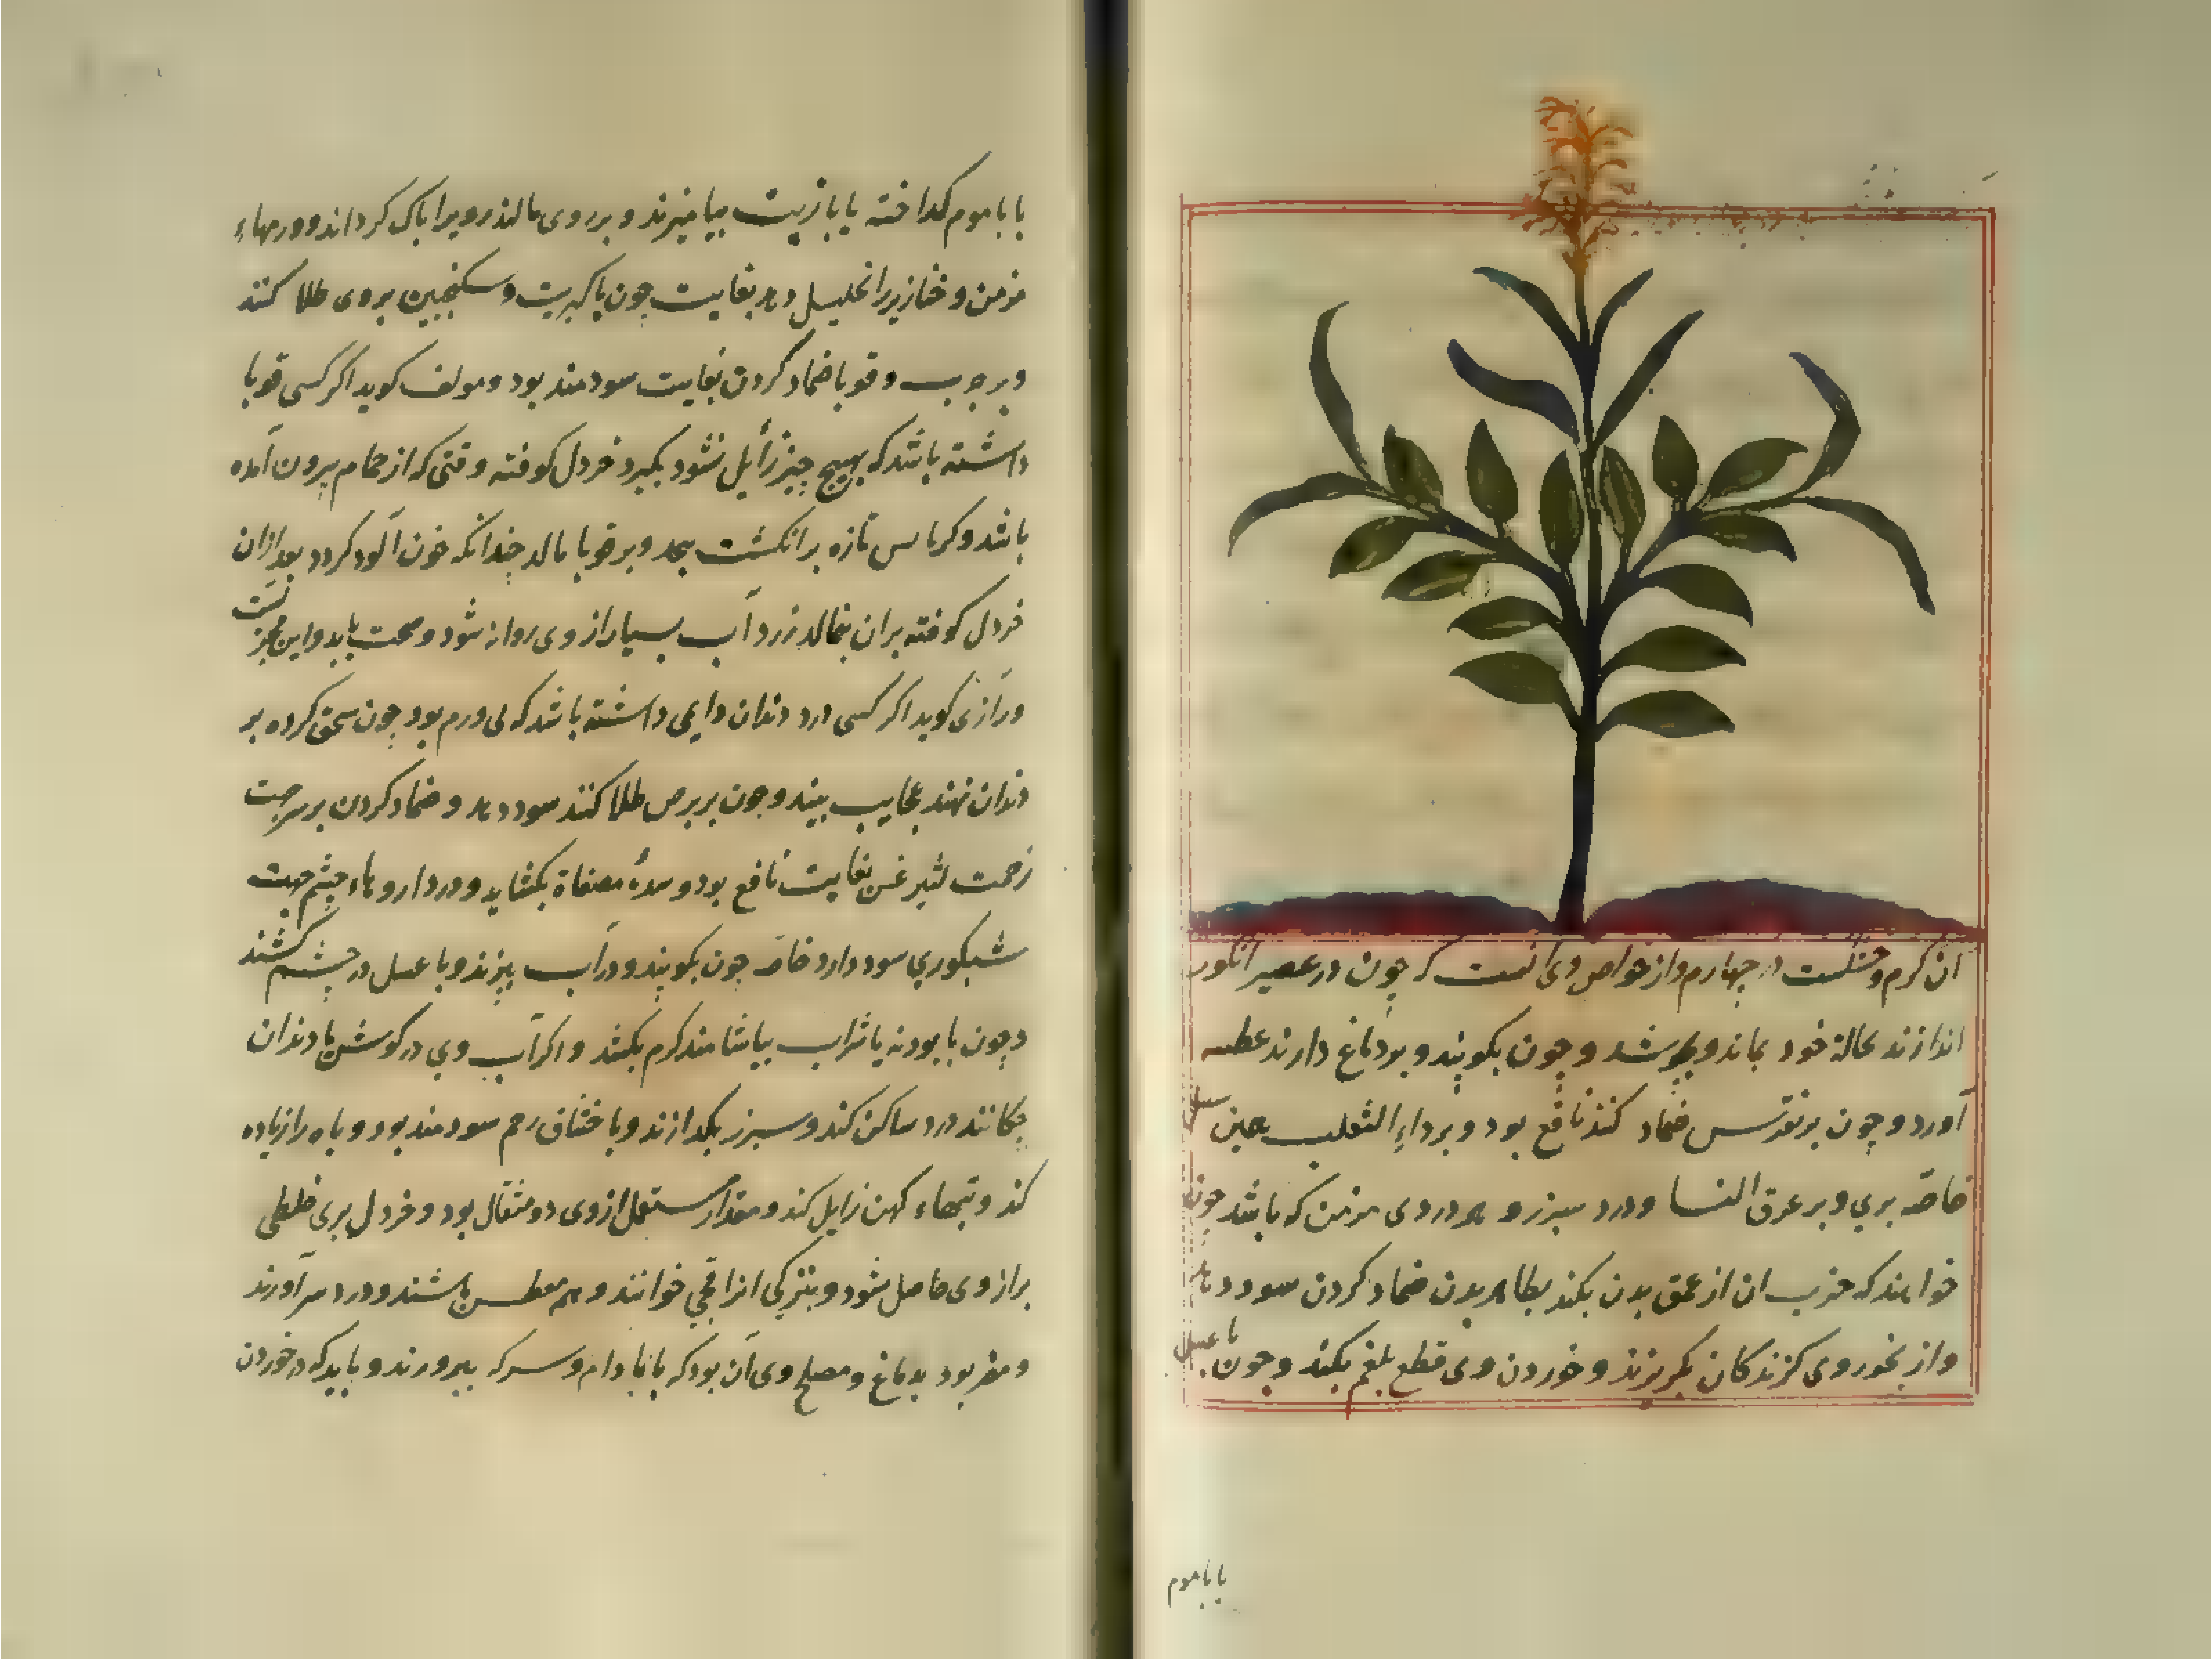 ان کرم و خشکست در چهارم و از خواص وی آنست که چون در عصیر انکور
اندازند بحالة خود بماند و نجوشد و چون بکوبند و بر دماغ دارند عطسه
آورد و چون بر نقرس ضماد کنند نافع بود و بر داء الثعلب همین سبیل
خاصّه بری و بر عرق النسا و درد سبرز و هر دردی مزمن که باشد چون
خواهند که جذب ان از عمق بدن بکند بظاهر بدن ضماد کردن سود دهد
و از بخور وی کزندکان بکریزند و خوردن وی قطع بلغم بکند و چون با عسل
یا با موم
یا با موم کداخته یا با زیت بیامیزند و بر روی مالند رو را پاک کرداند و ورمهاء
مزمن و خنازیر را تحلیل دهد بغایت چون با کبریت و سکنجبین بر وی طلا کنند
و بر جرب و قوبا ضماد کردن بغایت سودمند بود و مولف کوید اکر کسی قوبا
داشته باشد که بهیچ چیز زایل نشود بکیرد خردل کوفته وقتی که از حمام بیرون آمده
باشد و کرباس تازه بر انکشت پیچد و بر قوبا مالد چندانکه خون آلود کردد بعد ازان
خردل کوفته بران بمالد زرد آب بسیار از وی روانه شود و صحت یابد و این مجربست
و رازی کوید اکر کسی درد دندان دایمی داشته باشد که بی ورم بود چون سحق کرده بر
دندان نهند عجایب بیند و چون بر برص طلا کنند سود دهد و ضماد کردن بر سر جهت
زحمت لیثرغس بغایت نافع بود و سدۀ مصفاة بکشاید و در داروهاء چشم جهت
شبکوری سود دارد خاصّه چون بکوبند و در آب بپزند و با عسل در چشم کشند
و چون با پودنه یا شراب بیاشامند کرم بکشد و اکر آب وی در کوش یا دندان
چکانند درد ساکن کند و سبرز بکدازند و با خناق رحم سودمند بود و باه را زیاده
کند و تبهاء کهن زایل کند و مقدار مستعمل از وی دو مثقال بود و خردل بری خلطی
بد از وی حاصل شود و بترکی انرا قچی خوانند و هم معطس باشند و درد سر آورند
و مضر بود بدماغ و مصلح وی آن بود که با بادام و سرکه بپرورند و باید که در خوردن